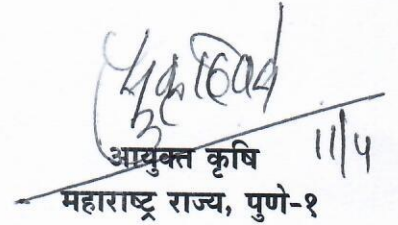 ११/५
आयुक्त कृषि
महाराष्ट्र राज्य, पुणे-१